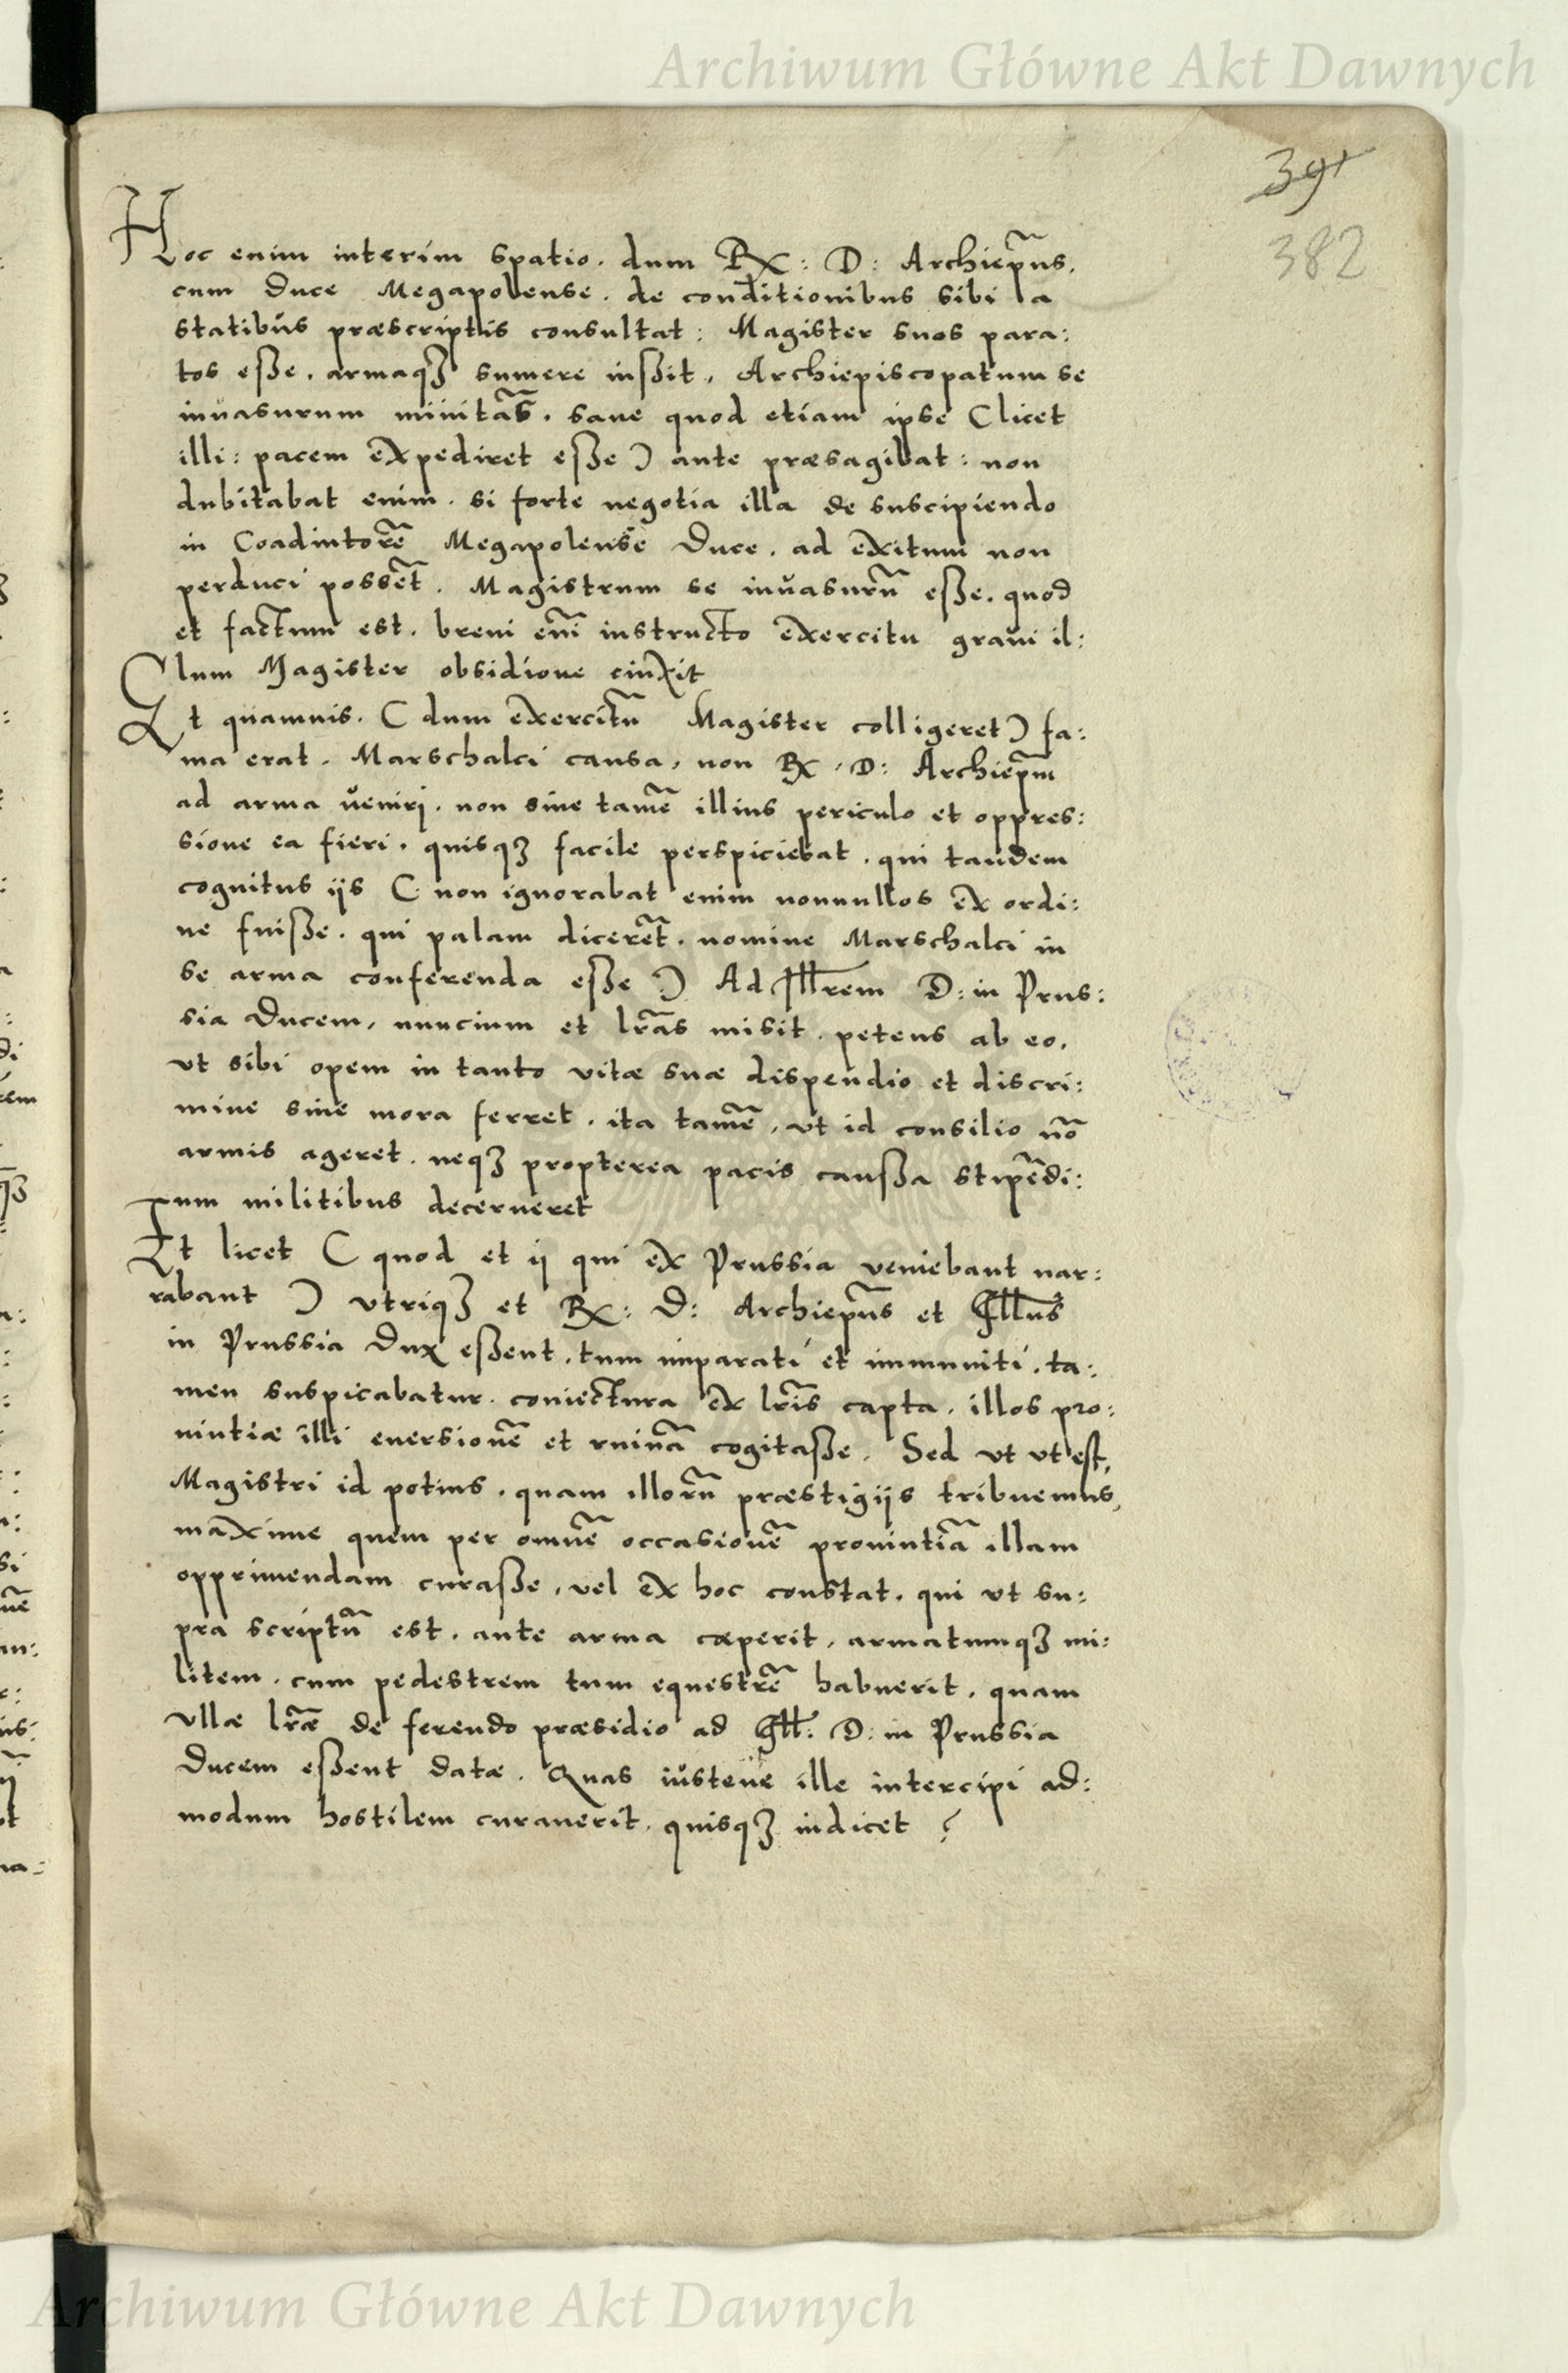 Archiwum Główne Akt Dawnych
391
382
Hoc enim interim spatio. dum Rx: D: Archiep̃us.
cum Duce Megapolense. de conditionibus sibi a
statibus præscriptis consultat: Magister suos para:
tos eſse. armaqȝ sumere iuſsit, Archiepiscopatum se
inuasurum minitãs. sane quod etiam ipse (licet
illi: pacem expediret eſse) ante præsagibat: non
dubitabat enim. si forte negotia illa de suscipiendo
in Coadiutorẽ Megapolense Duce. ad exitum non
perduci possẽt. Magistrum se inuasurũ eſse. quod
et factum est. breui em̃ instructo exercitu graui il:
lum Magister obsidione cinxit
Et quamuis. (dum exercitũ Magister colligeret) fa:
ma erat. Marschalci causa, non Rx. D: Archiep̃m
ad arma veniri. non sine tamẽ illius periculo et oppres:
sione ea fieri. quisqȝ facile perspiciebat. qui tandem
cognitus iis (non ignorabat enim nonnullos ex ordi:
ne fuiſse. qui palam dicerẽt. nomine Marschalci in
se arma conferenda eſse) Ad Illrem D: in Prus:
sia Ducem, nuncium et lr̃as misit. petens ab eo.
vt sibi opem in tanto vitæ suæ dispendio et discri:
mine sine mora ferret. ita tamẽ, vt id consilio nõ
armis ageret. neqȝ propterea pacis cauſsa stipẽdi:
um militibus decerneret
Et licet (quod et ij qui ex Prussia veniebant nar:
rabant) vtriqȝ et Rx: D: Archiep̃us et Illus
in Prussia Dux eſsent. tum imparati et immuniti. ta:
men suspicabatur. coniectura ex lr̃is capta. illos pro:
uintiæ illi euersionẽ et ruinã cogitaſse. Sed vt vt est,
Magistri id potius. quam illorũ præstigijs tribuemus,
maxime quem per omnẽ occasionẽ prouintiã illam
opprimendam curaſse, vel ex hoc constat. qui vt su:
pra scriptũ est. ante arma cæperit, armatumqȝ mi:
litem. cum pedestrem tum equestrẽ habuerit. quam
vllæ lr̃æ de ferendo præsidio ad Ill: D: in Prussia
Ducem eſsent datæ. Quas iustene ille intercipi ad:
modum hostilem curauerit. quisqȝ iudicet ?
Archiwum Główne Akt Dawnych